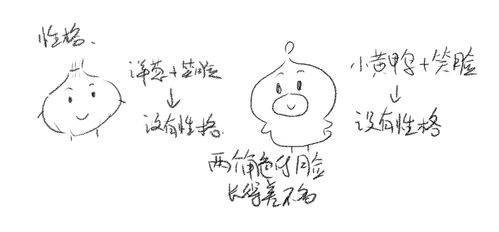 性格.
洋葱+笑脸
↓
没有性格.
小黄鸭子+笑脸
↓
没有性格
两个角色的脸
长得差不多